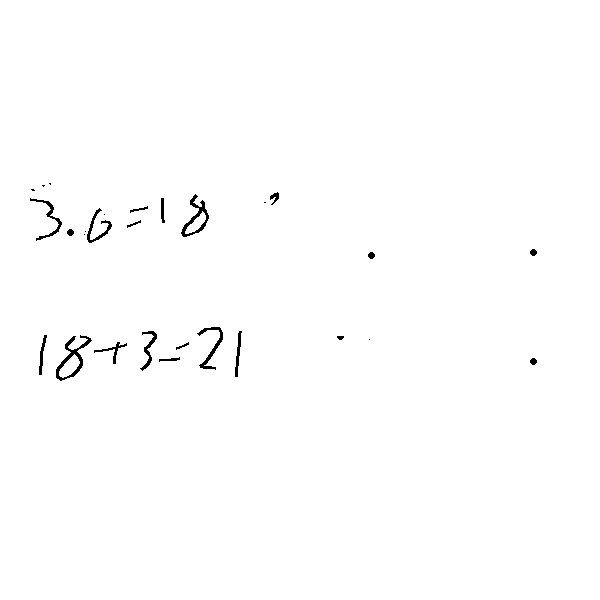 3.6=18
18+3=21